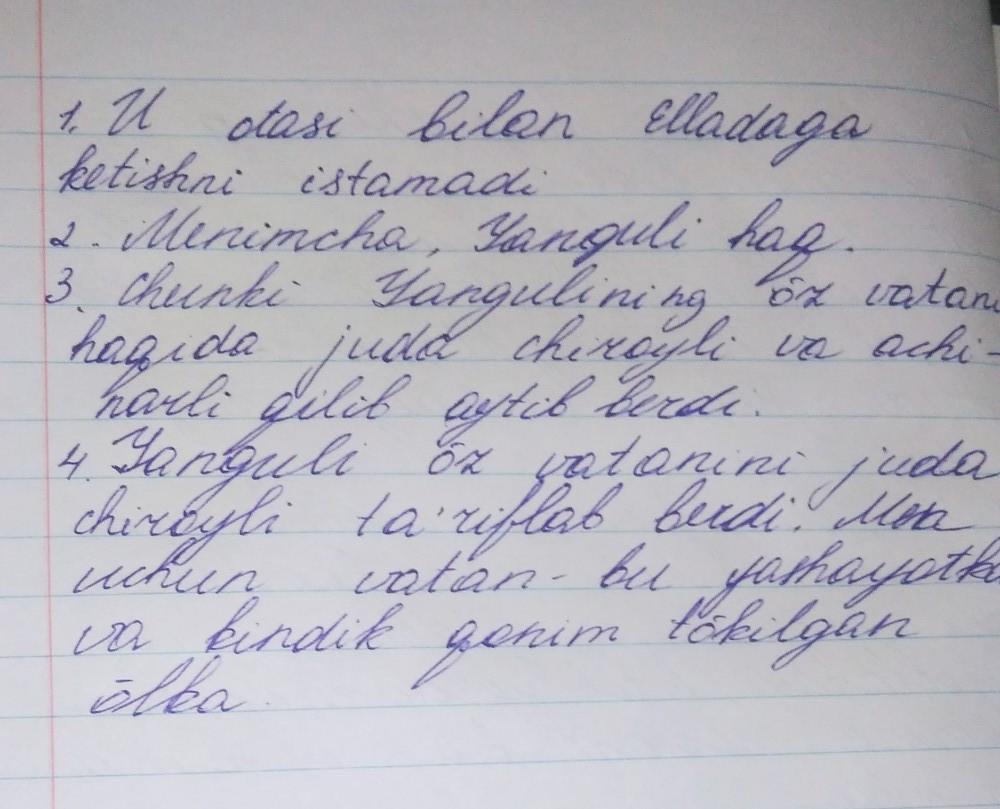 1. U otasi bilan Elladaga
ketishni istamadi
2. Menimcha, Yanguli haq.
3. Chunki Yangulining õz vatani
haqida juda chiroyli va achi-
narli qilib aytib berdi.
4. Yanguli õz vatanini juda
chiroyli ta'riflab berdi. Men
uchun vatan - bu yashayotka
va kindik qonim tõkilgan
õlka